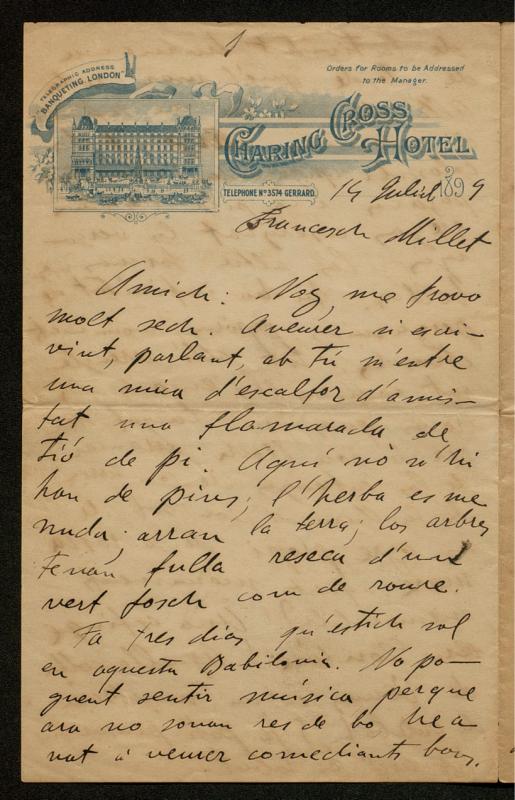 1
TELEGRAPHIC ADDRESS
"BANQUETING, LONDON"
Orders for Rooms to be Addressed
to the Manager.
CHARING CROSS
HOTEL
TELEPHONE Nº 3574 GERRARD.
14 Juliol 1899
Francesch Millet
Amich: Noy, me trovo
molt sech. A veurer si escri-
vint, parlant ab tú m'entre
una mica d'escalfor d'amis-
tat una flamarada de
tió de pi. Aquí nò n'hi
han de pins; l'herba es me
nuda, arran la terra; los arbres
tenan fulla reseca d'un
vert fosch com de roure.
Fa tres dias qu'estich sol
en aquesta Babilonia. No po-
guent sentir música perque
ara no sonan res de bo, he a
nat á veurer comediants bons.